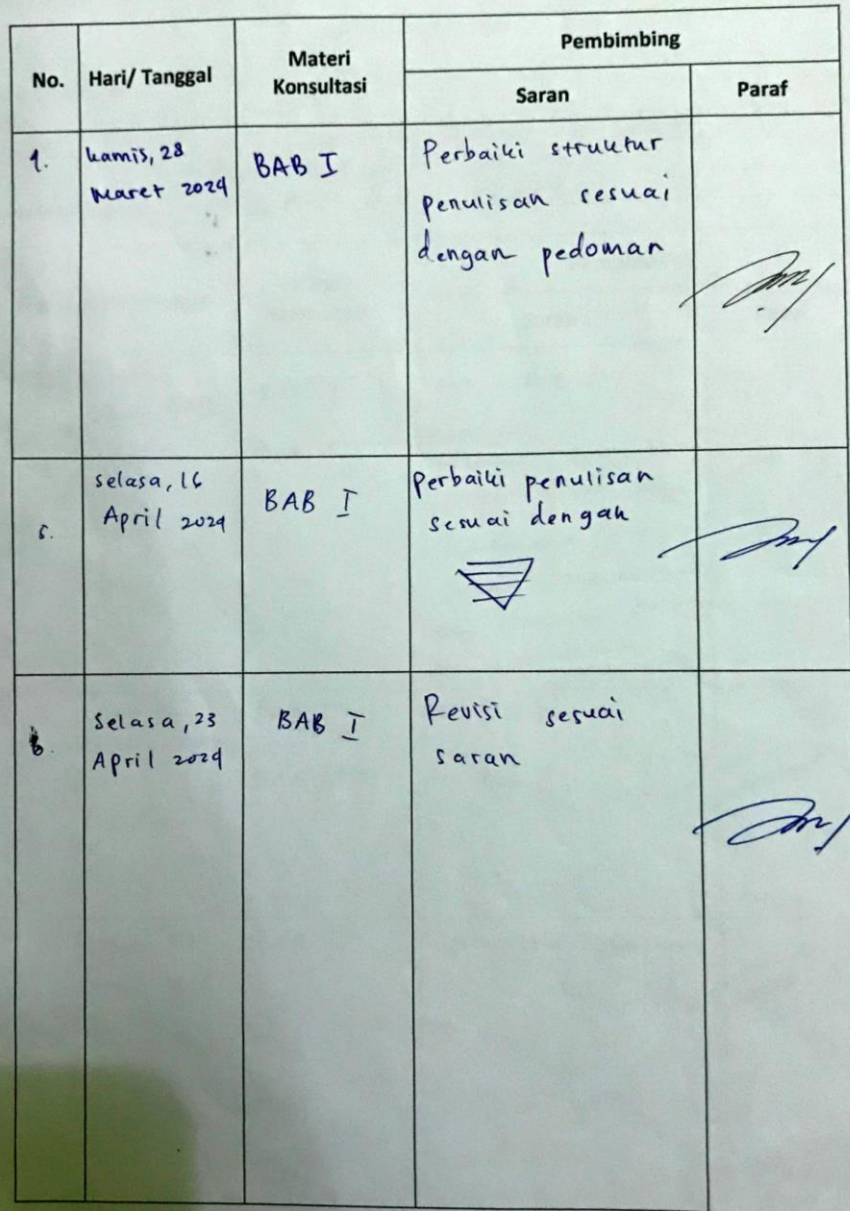 Pembimbing
No. Hari/ Tanggal Materi
Konsultasi
Saran Paraf
kamis, 28
Maret 2024
BAB I
Perbaiki struktur
penulisan sesuai
dengan pedoman
selasa, 16
April 2024
BAB I
perbaiki penulisan
sesuai dengan
Selasa, 23
April 2024
BAB I
Revisi sesuai
saran